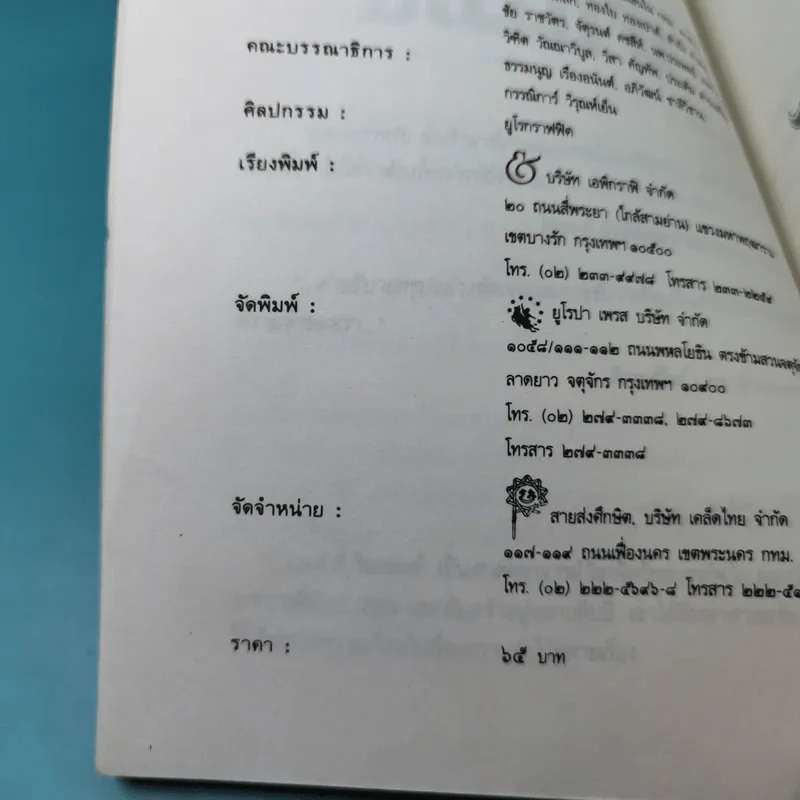 คณะบรรณาธิการ :
ชัย ราชวัตร, จัตุรนต์ คชสีห์,
วิฑิต วัณณาวิบูล, วิสา คัญทัพ, ประเดิม
ธรรมนูญ เรืองอนันต์, อภิวัฒน์
กรรณิการ์ วิรุณห์เย็น
ศิลปกรรม :
ยูโรกราฟฟิค
เรียงพิมพ์ :
บริษัท เอพิกราฟิ จำกัด
๒๐ ถนนสี่พระยา (ใกล้สามย่าน) แขวงมหาพฤฒาราม
เขตบางรัก กรุงเทพฯ ๑๐๕๐๐
โทร. (๐๒) ๒๓๓-๙๙๗๘ โทรสาร ๒๓๓-๒๒๕๙
จัดพิมพ์ :
ยูโรปา เพรส บริษัท จำกัด
๑๐๕๘/๑๑๑-๑๑๒ ถนนพหลโยธิน ตรงข้ามสวนจตุจักร
ลาดยาว จตุจักร กรุงเทพฯ ๑๐๙๐๐
โทร. (๐๒) ๒๗๙-๓๓๓๘, ๒๗๙-๘๖๗๓
โทรสาร ๒๗๙-๓๓๓๘
จัดจำหน่าย :
สายส่งศึกษิต, บริษัท เคล็ดไทย จำกัด
๑๑๗-๑๑๙ ถนนเฟื่องนคร เขตพระนคร กทม.
โทร. (๐๒) ๒๒๒-๕๖๙๖-๘ โทรสาร ๒๒๒-๕๑
ราคา :
๖๕ บาท